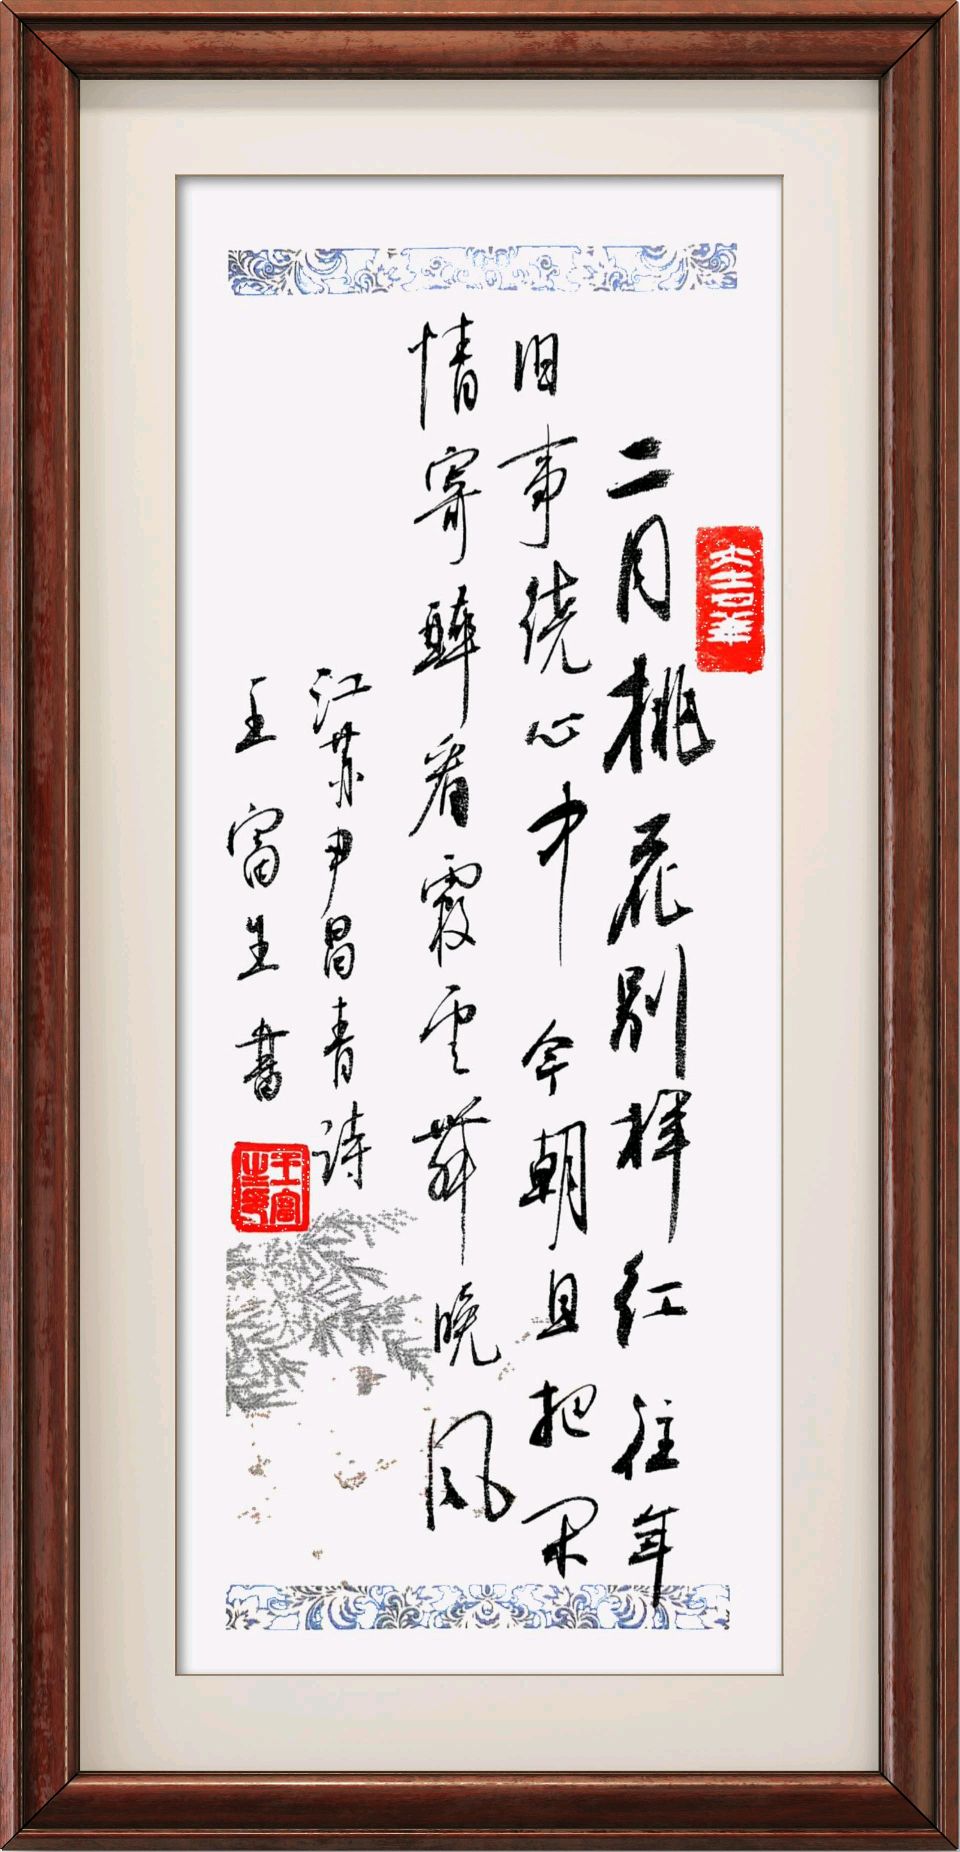 二月桃花别样红往年
旧事绕心中今朝且把闲
情寄醉看霞雲舞晚风
江苏尹昌青诗
王富生書